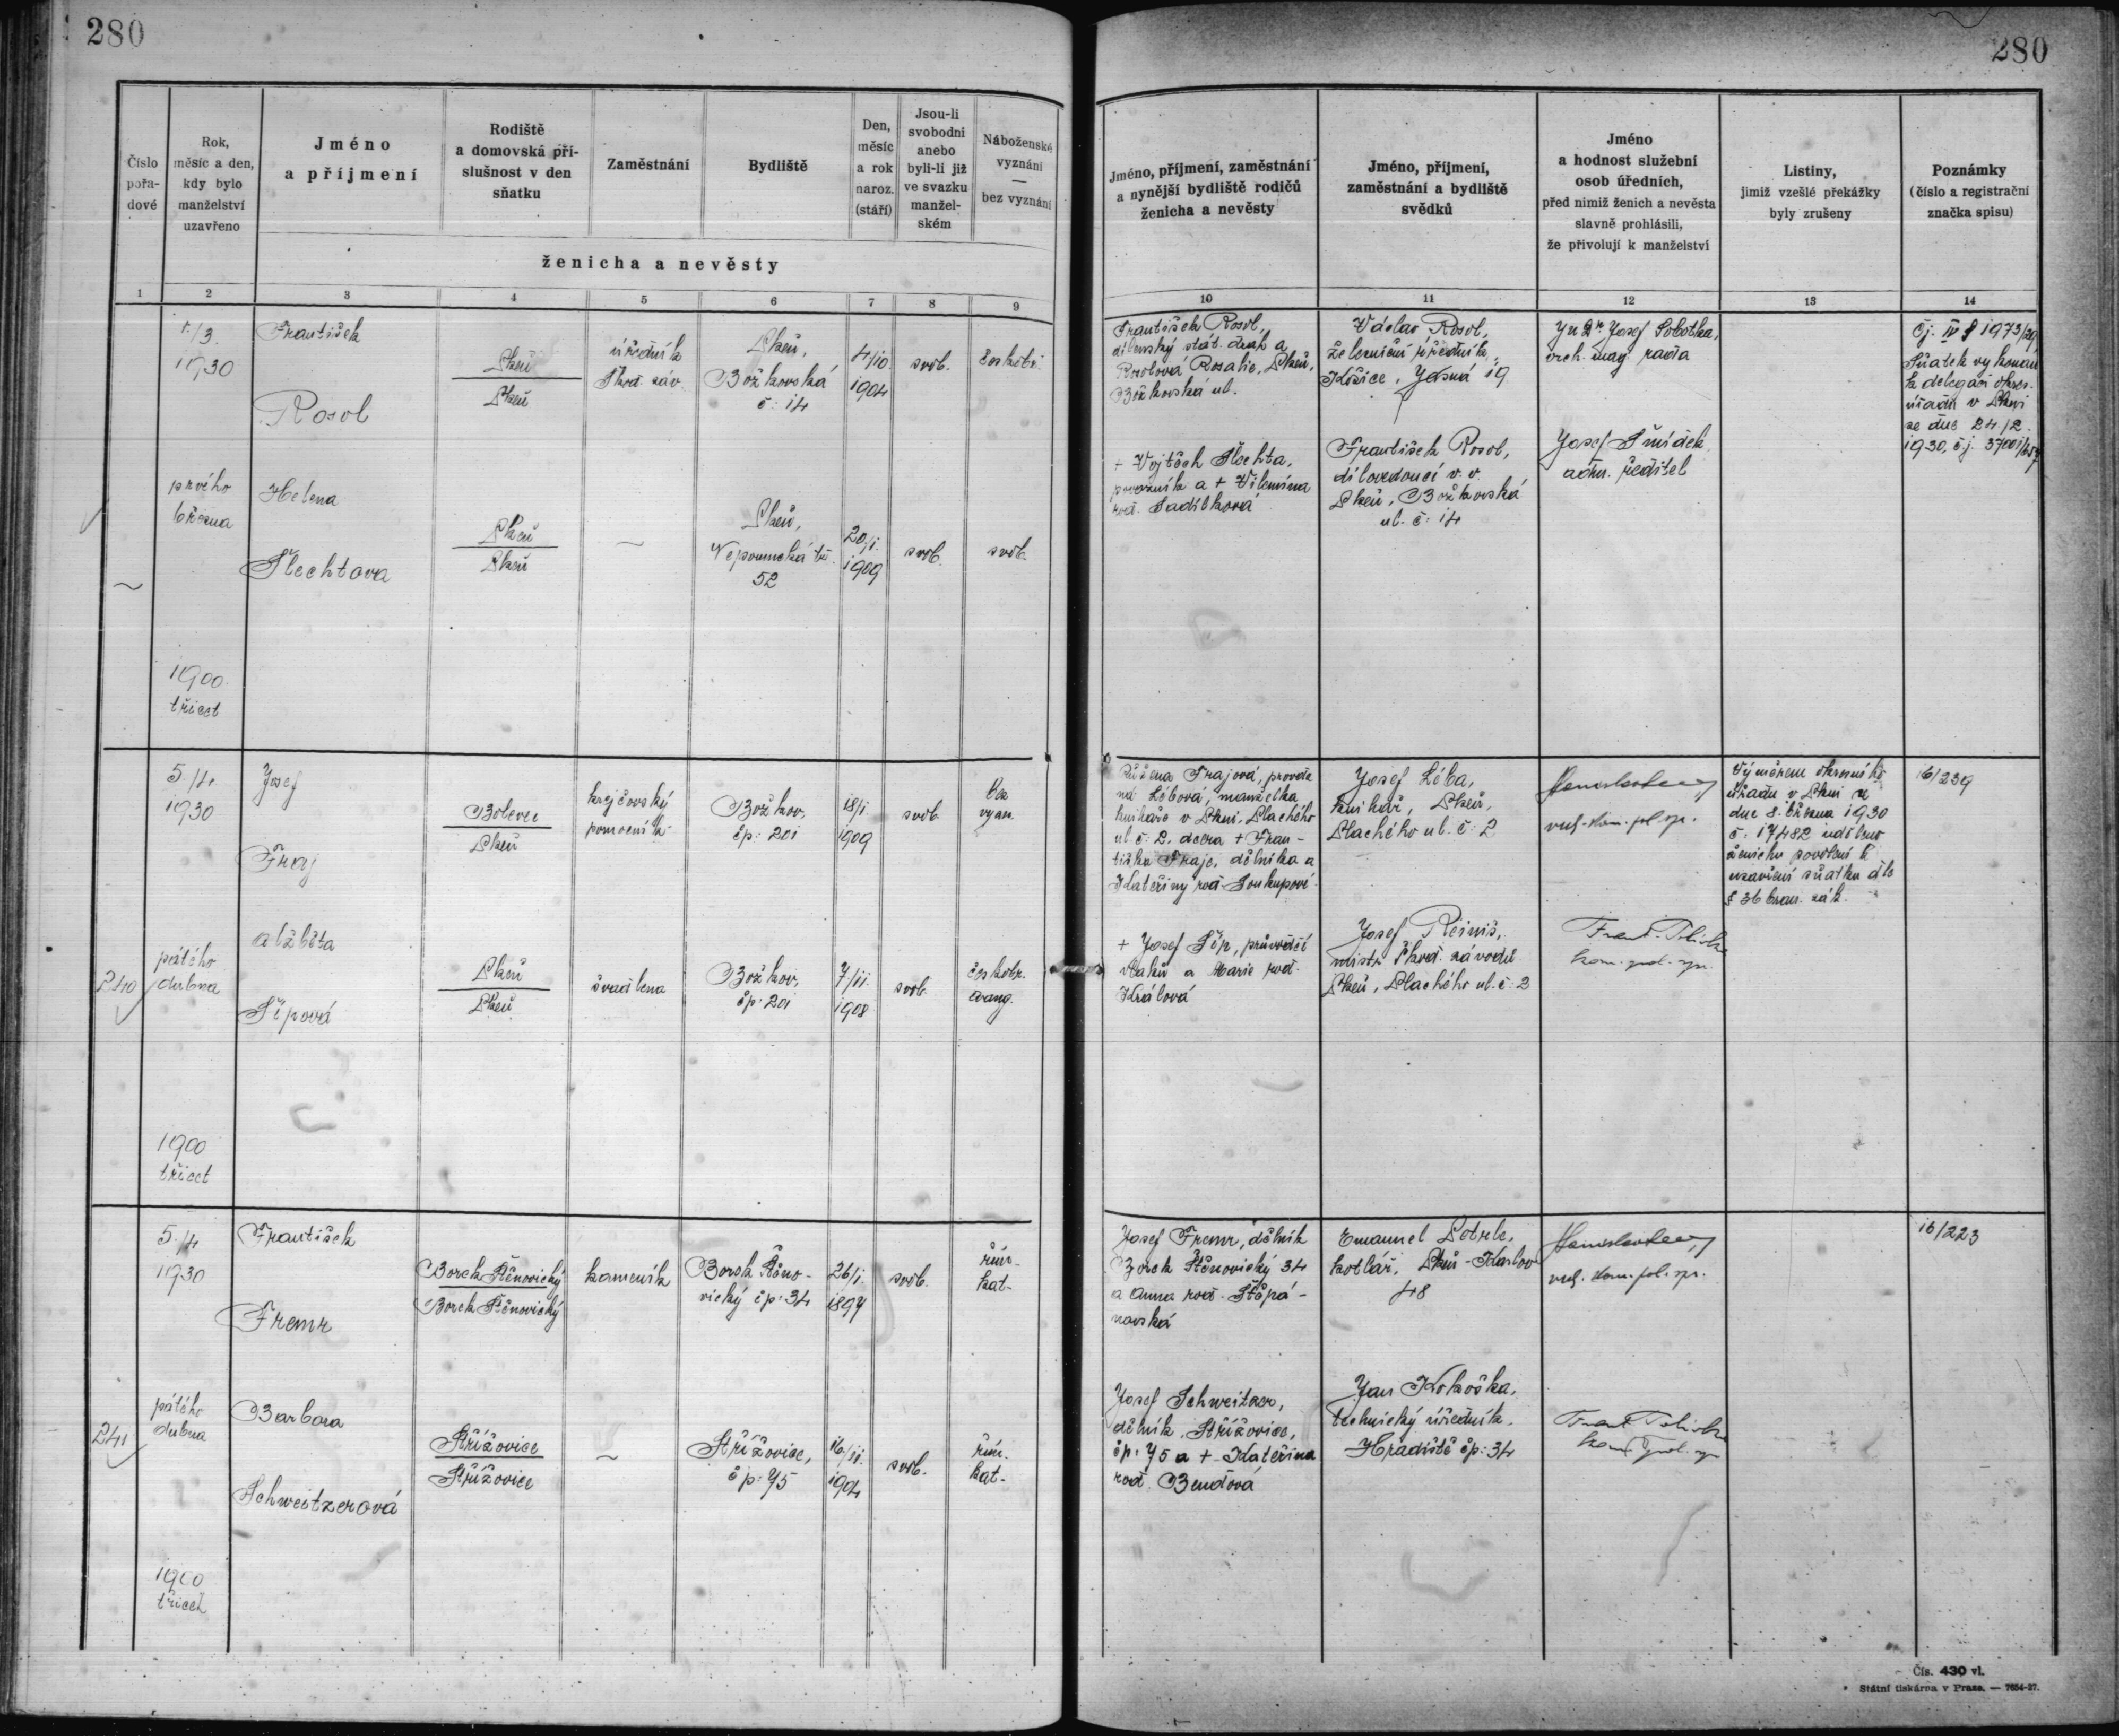 280
280
Číslo pořa- dové
Rok, měsíc a den, kdy bylo manželství uzavřeno
Jméno a příjmení
Rodiště a domovská pří- slušnost v den sňatku
Zaměstnání
Bydliště
Den, měsíc a rok naroz. (stáří)
Jsou-li svobodni anebo byli-li již ve svazku manžel- ském
Náboženské vyznání — bez vyznání
ženicha a nevěsty
Jméno, příjmení, zaměstnání a nynější bydliště rodičů ženicha a nevěsty
Jméno, příjmení, zaměstnání a bydliště svědků
Jméno a hodnost služební osob úředních, před nimiž ženich a nevěsta slavně prohlásili, že přivolují k manželství
Listiny, jimiž vzešlé překážky byly zrušeny
Poznámky (číslo a registrační značka spisu)
1 2 3 4 5 6 7 8 9
10 11 12 13 14
1./3.
1930
František
Rosol
Plzeň
Plzeň
úředník
Škod. záv.
Plzeň,
Božkovská
č: 14
4/10
1904
svob.
prvého
března
Helena
Šlechtova
Plzeň
Plzeň
~
Plzeň,
Nepomucká tř.
52
20/1.
1909
svob.
svob.
~
1900
třicet
František Rosol,
dílenský stát. drah a
Rosolová Rosalie, Plzeň,
Božkovská ul.
+ Vojtěch Šlechta,
povozník a + Vilemína
roz. Sadílková
Václav Rosol,
železniční úředník,
Košice, Jasná 19
František Rosol,
dílovedoucí v. v.
Plzeň, Božkovská
ul. č: 14
JuDr. Josef Sobotka,
vrch. mag. rada
Josef Šmídek
adm. ředitel
Čj. IV 1973/29
Sňatek vykonán
k delegaci okres.
úřadu v Plzni
ze dne 24./2.
1930, čj.
240
5./4.
1930
Josef
Fraj
Bolevec
Plzeň
krejčovský
pomocník
Božkov,
čp: 201
18/1.
1909
svob.
bez
vyzn.
pátého
dubna
Alžběta
Šípová
Plzeň
Plzeň
švadlena
Božkov,
čp: 201
7/11.
1908
svob.
českobr.
evang.
1900
třicet
Růžena Frajová, provda-
ná Lébová, manželka
knihaře v Plzni, Plachého
ul č: 2. dcera + Fran-
tiška Fraje, dělníka a
Kateřiny roz. Soukupové
+ Josef Šíp, průvodčí
vlaků a Marie roz.
Králová
Josef Léba,
knihař, Plzeň,
Plachého ul. č: 2
Josef Reiniš,
mistr Škod. závodů
Plzeň, Plachého ul. č: 2
kom. pol. spr.
Výměrem okresního
úřadu v Plzni ze
dne 8. března 1930
č. 17482 uděleno
ženichu povolení k
uzavření sňatku dle
§ 36 bran. zák.
16/239
241
5./4
1930
František
Fremr
Borek Štěnovický
Borek Štěnovický
kameník
Borek Štěno-
vický čp: 34
26/1.
1897
svob.
řím.
kat.
pátého
dubna
Barbora
Schweitzerová
Střížovice
Střížovice
~
Střížovice,
čp: 75
16/11.
1904
svob.
řím.
kat.
1900
třicet
Josef Fremr, dělník
Borek Štěnovický 34
a Anna roz. Štěpá-
novská
Josef Schweitzer,
dělník, Střížovice,
čp: 75 a + Kateřina
roz. Bendová
Emanuel Potrle,
kotlář, Plzeň - Karlov
48
Jan Kokoška,
technický úředník,
Hradiště čp: 34
kom. pol. spr.
16/223
Čís. 430 vl.
Státní tiskárna v Praze. — 7654-27.